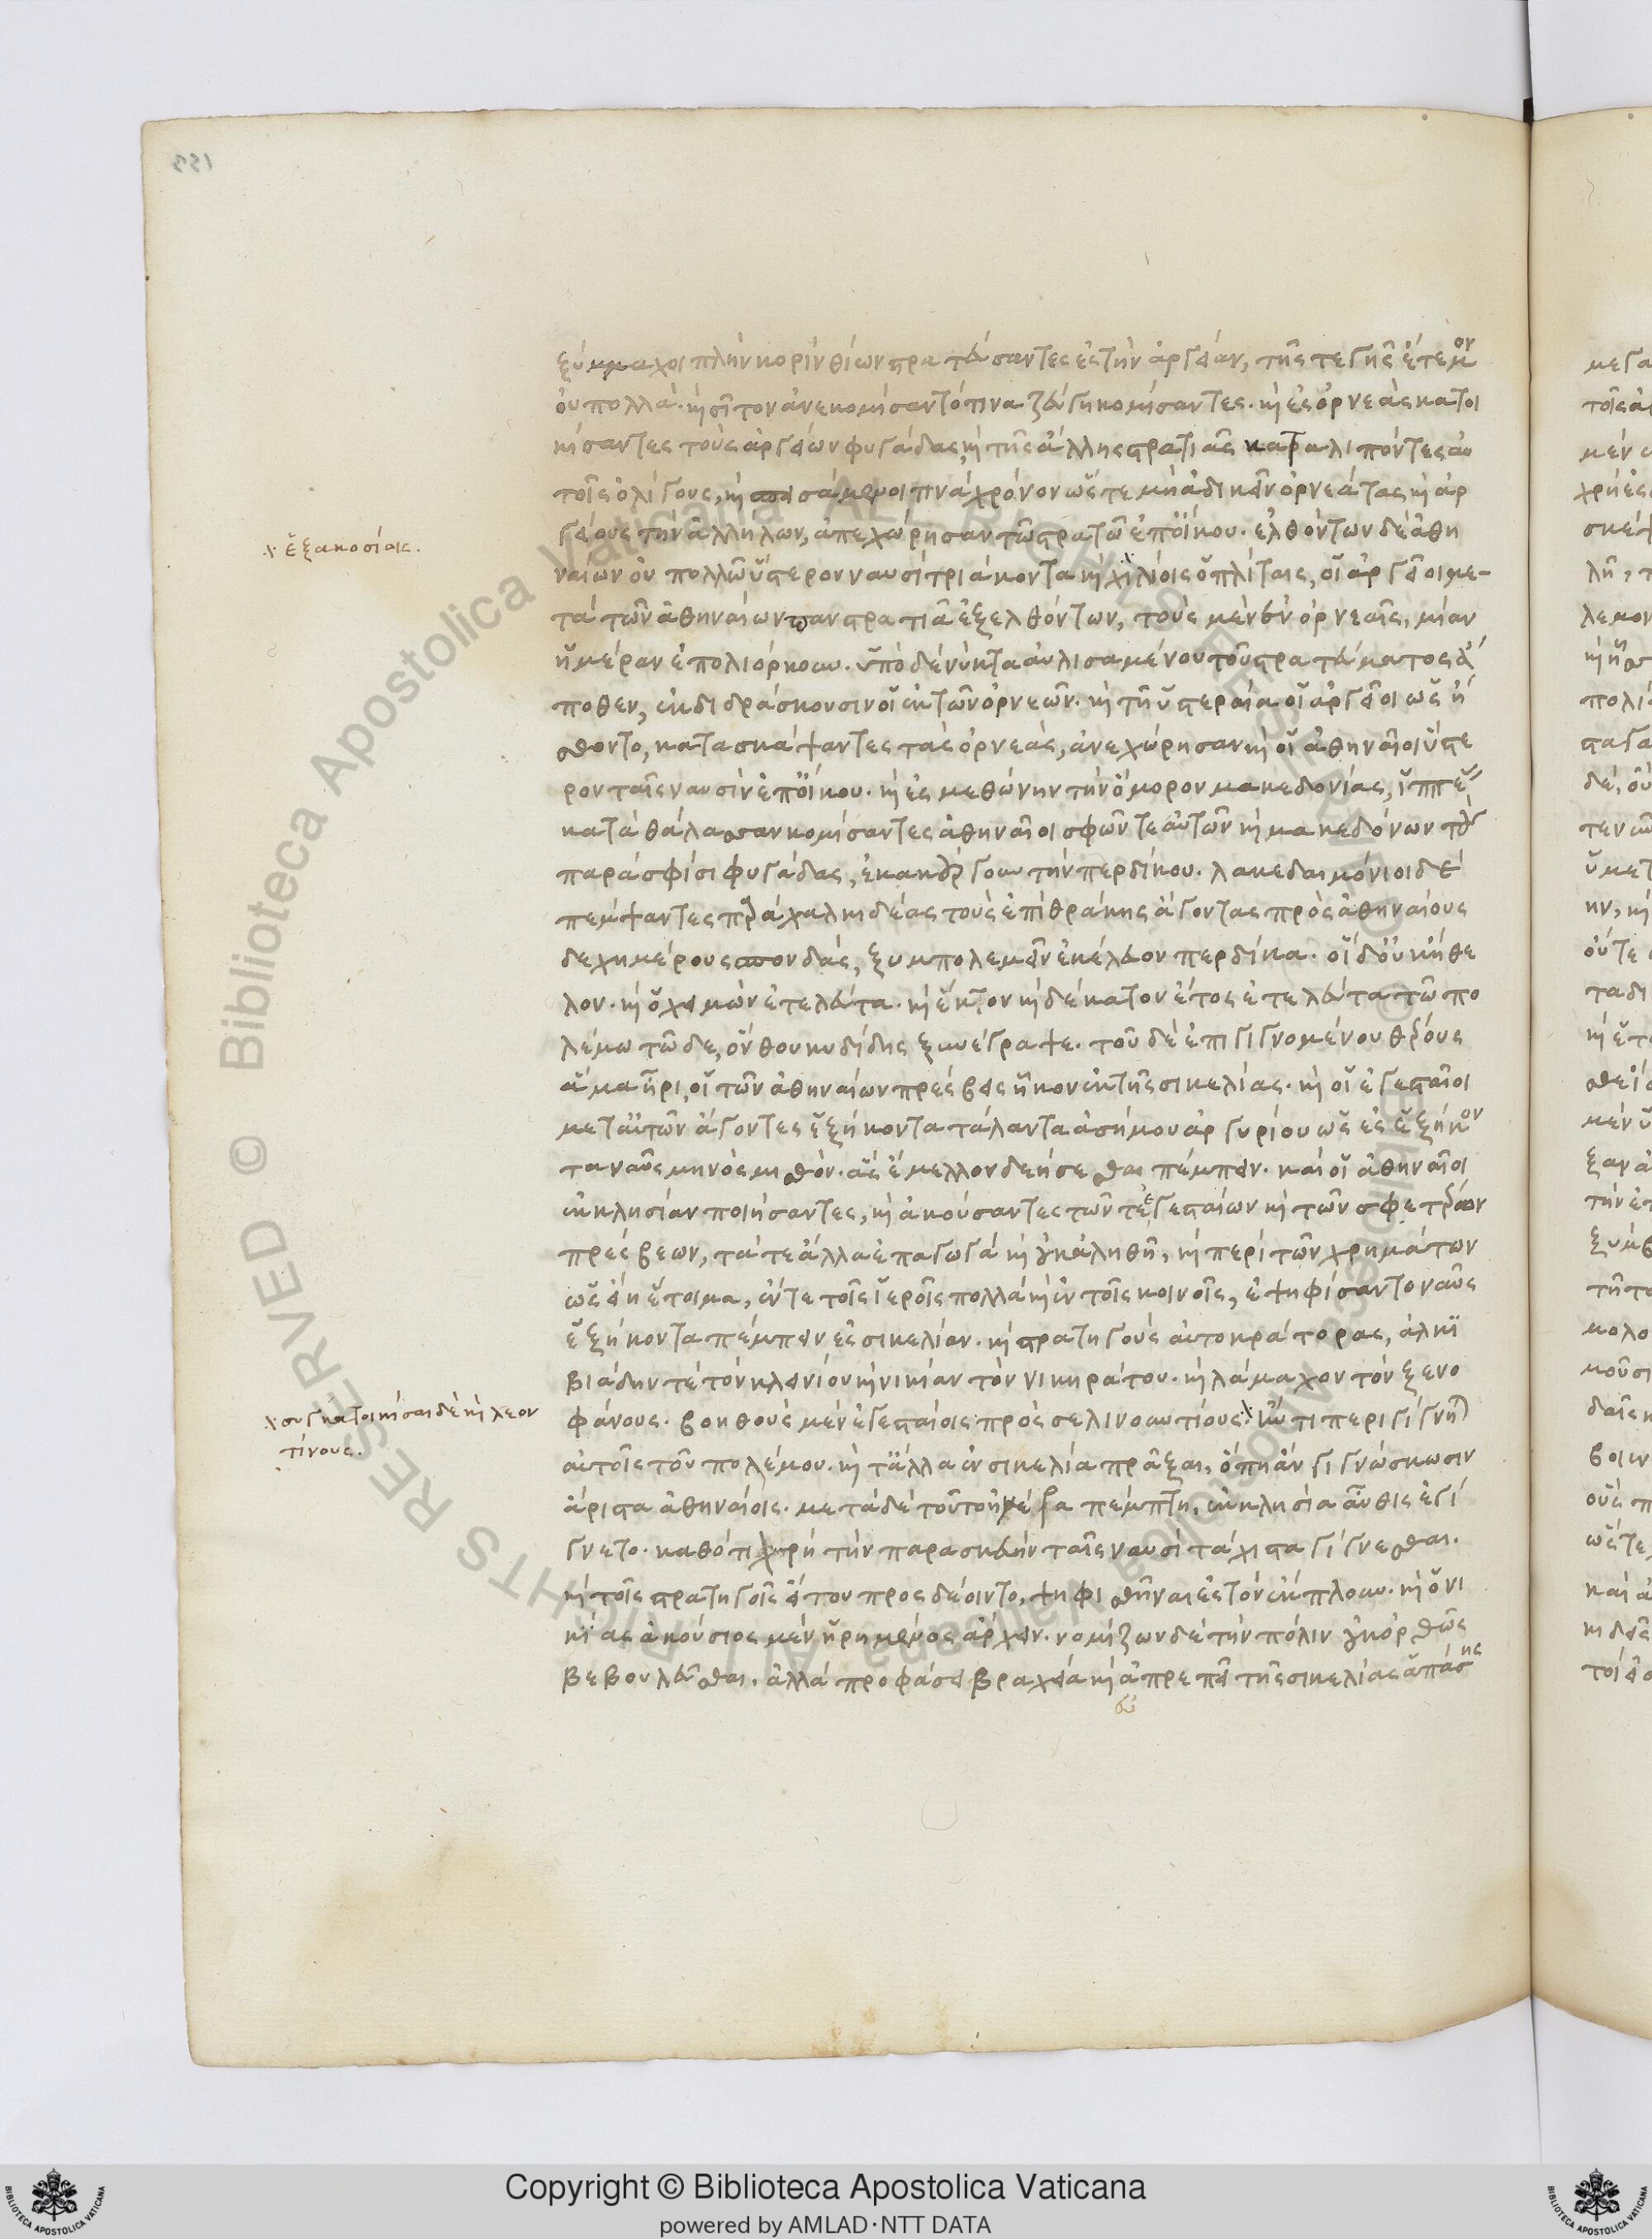 ξύμμαχοι πλὴν κορινθίων στρατεύσαντες ἐς τὴν ἀργείαν, τῆς τε γῆς ἔτεμον
οὐ πολλὰ. καὶ σῖτον ἀνεκομίσαντό τινα ζεύγη κομίσαντες. καὶ ἐς ὀρνεὰς κατοι
κίσαντες τοὺς ἀργείων φυγάδας, καὶ τῆς ἄλλης στρατιᾶς καταλιπόντες αὐ
τοῖς ὀλίγους, καὶ σπεισάμενοί τινα χρόνον ὥστε μὴ ἀδικεῖν ὀρνεάτας καὶ ἀρ
γείους τὴν ἀλλήλων, ἀπεχώρησαν τῶ στρατῶ ἐπ οἴκου. ἐλθόντων δὲ ἀθη
ναίων οὐ πολλῶ ὕστερον ναυσὶ τριάκοντα καὶ χιλίοις ὁπλίταις, οἱ ἀργεῖοι με-
τὰ τῶν ἀθηναίων πανστρατιᾶ ἐξελθόντων, τοὺς μὲν ἐν ὀρνεαῖς, μίαν
ἡμέραν ἐπολιόρκουν. ὑπὸ δὲ νύκτα αὐλισαμένου τοῦ στρατεύματος ἄ
ποθεν, ἐκδιδράσκουσιν οἱ ἐκ τῶν ὀρνεῶν. καὶ τῆ ὑστεραία οἱ ἀργεῖοι ὡς ἤ
σθοντο, κατασκάψαντες τὰς ὀρνεὰς, ἀνεχώρησαν καὶ οἱ ἀθηναῖοι ὕστε
ρον ταῖς ναυσὶν ἐπ οἴκου. καὶ ἐς μεθώνην τὴν ὅμορον μακεδονίας, ἱππέας
κατὰ θάλασσαν κομίσαντες ἀθηναῖοι σφῶν τε αὐτῶν καὶ μακεδόνων τοὺς
παρὰ σφίσι φυγάδας, ἐκακούργουν τὴν περδίκου. λακεδαιμόνιοι δὲ
πέμψαντες παρὰ χαλκιδέας τοὺς ἐπὶ θράκης ἄγοντας πρὸς ἀθηναίους
δεχημέρους σπονδὰς, ξυμπολεμεῖν ἐκέλευον περδίκα. οἱ δ οὐκ ἤθε
λον. καὶ ὁ χειμὼν ἐτελεύτα. καὶ ἕκτον καὶ δέκατον ἔτος ἐτελεύτα τῶ πο
λέμω τῶδε, ὃν θουκυδίδης ξυνέγραψε. τοῦ δὲ ἐπιγιγνομένου θέρους
ἅμα ἦρι, οἱ τῶν ἀθηναίων πρέσβεις ἧκον ἐκ τῆς σικελίας. καὶ οἱ ἐγεσταῖοι
μετ αὐτῶν ἄγοντες ἑξήκοντα τάλαντα ἀσήμου ἀργυρίου ὡς ἐς ἑξήκον
τα ναῦς μηνὸς μισθὸν. ἃς ἔμελλον δεήσεσθαι πέμπειν. καὶ οἱ ἀθηναῖοι
ἐκκλησίαν ποιήσαντες, καὶ ἀκούσαντες τῶν τε ἐγεσταίων καὶ τῶν σφετέρων
πρέσβεων, τά τε ἄλλα ἐπαγωγὰ καὶ οὐκ ἀληθῆ, καὶ περὶ τῶν χρημάτων
ὡς εἴη ἕτοιμα, ἔν τε τοῖς ἱεροῖς πολλὰ καὶ ἐν τοῖς κοινοῖς, ἐψηφίσαντο ναῦς
ἑξήκοντα πέμπειν ἐς σικελίαν. καὶ στρατηγοὺς αὐτοκράτορας, ἀλκι
βιάδην τὲ τὸν κλεινίου καὶ νικίαν τὸν νικηράτου. καὶ λάμαχον τὸν ξενο
φάνους. βοηθοὺς μὲν ἐγεσταίοις πρὸς σελινουντίους. ἤν τι περιγίγνηται
αὐτοῖς τοῦ πολέμου. καὶ τἄλλα ἐν σικελία πρᾶξαι, ὅπη ἂν γιγνώσκωσιν
ἄριστα ἀθηναίοις. μετὰ δὲ τοῦτο ἡμέρα πέμπτη, ἐκκλησία αὖθις ἐγί
γνετο. καθότι χρὴ τὴν παρασκευὴν ταῖς ναυσὶ τάχιστα γίγνεσθαι.
καὶ τοῖς στρατηγοῖς εἴ του προσδέοιντο, ψηφισθῆναι ἐς τὸν ἔκπλουν. καὶ ὁ νι
κίας ἀκούσιος μὲν ᾑρημένος ἄρχειν. νομίζων δὲ τὴν πόλιν οὐκ ὀρθῶς
βεβουλεῦσθαι. ἀλλὰ προφάσει βραχεία καὶ εὐπρεπεῖ τῆς σικελίας ἁπάσης
ἑξακοσίοις.
συγκατοικίσαι δὲ καὶ λεον
τίνους.
Copyright © Biblioteca Apostolica Vaticana
powered by AMLAD·NTT DATA